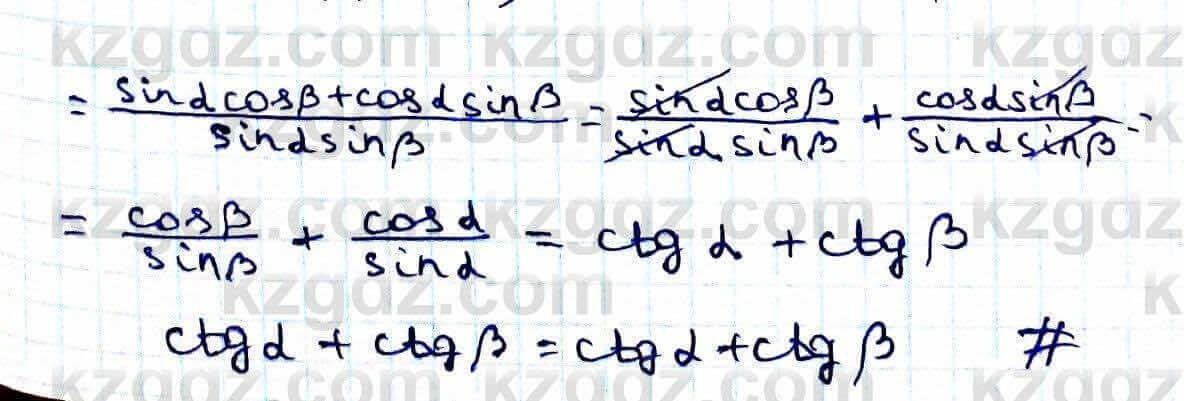 kzgdz.com kzgdz.com kzgdz
= (sinα cosβ + cosα sinβ)/(sinα sinβ) = (sinα cosβ)/(sinα sinβ) + (cosα sinβ)/(sinα sinβ) =
= cosβ/sinβ + cosα/sinα = ctg α + ctg β
kzgdz.com
ctg α + ctg β = ctg α + ctg β #
kzgdz.com kzgdz.com kzgdz